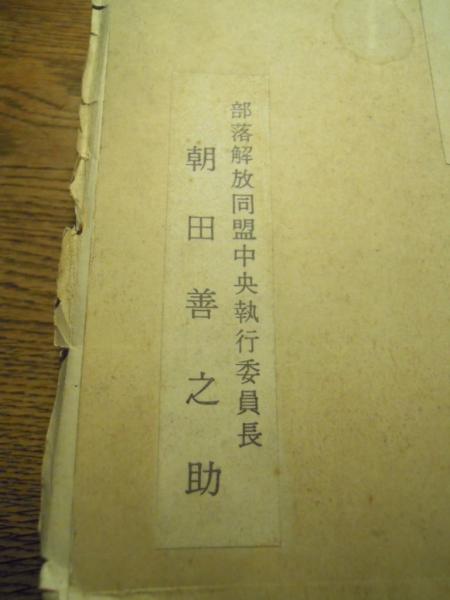 部落解放同盟中央執行委員長
朝田善之助